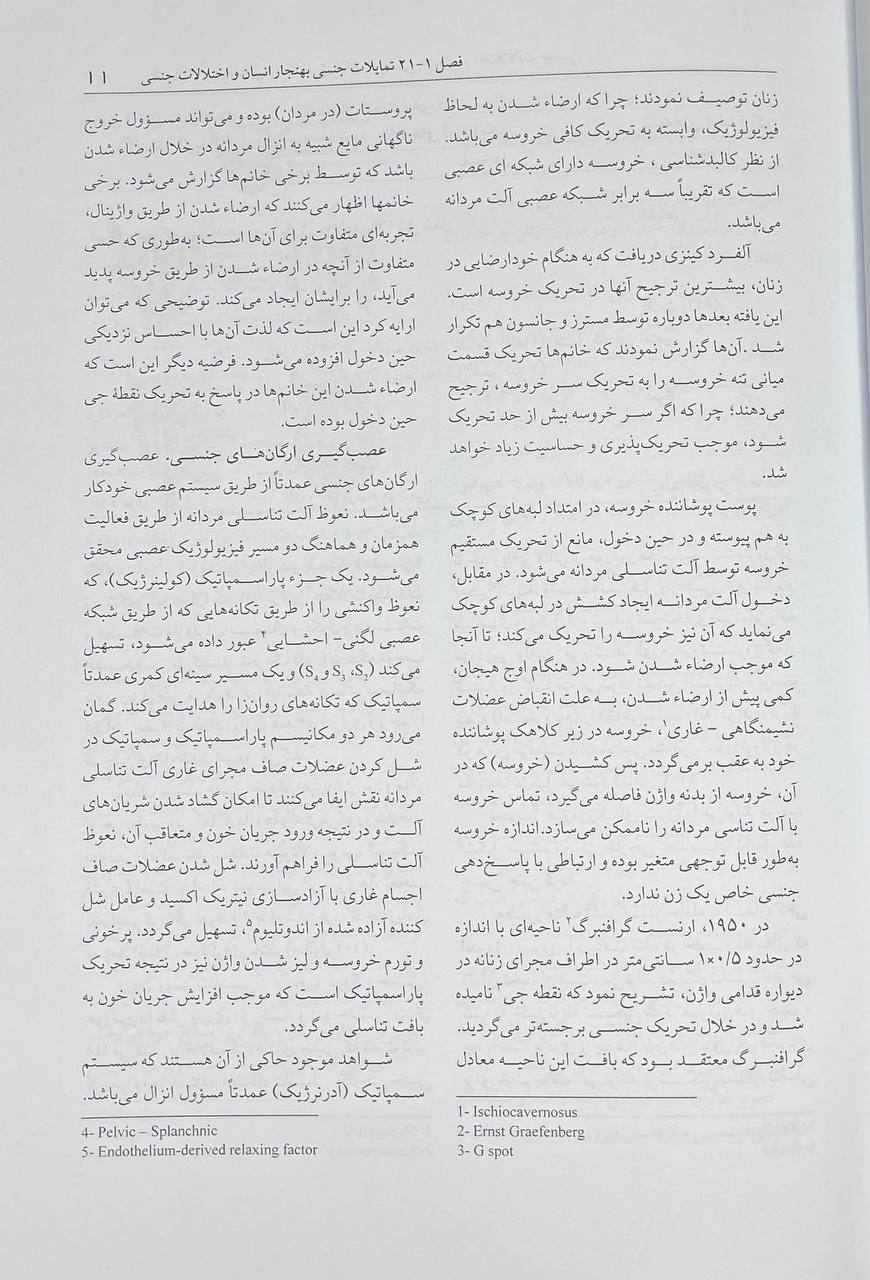 فصل ۱-۲۱ تمایلات جنسی بهنجار انسان و اختلالات جنسی ۱۱
زنان توصیف نمودند؛ چرا که ارضاء شدن به لحاظ
فیزیولوژیک، وابسته به تحریک کافی خروسه می‌باشد.
از نظر کالبدشناسی ، خروسه دارای شبکه ای عصبی
است که تقریباً سه برابر شبکه عصبی آلت مردانه
می‌باشد.
آلفرد کینزی دریافت که به هنگام خودارضایی در
زنان، بیشترین ترجیح آنها در تحریک خروسه است.
این یافته بعدها دوباره توسط مسترز و جانسون هم تکرار
شد .آن‌ها گزارش نمودند که خانم‌ها تحریک قسمت
میانی تنه خروسه را به تحریک سر خروسه ، ترجیح
می‌دهند؛ چرا که اگر سر خروسه بیش از حد تحریک
شود، موجب تحریک‌پذیری و حساسیت زیاد خواهد
شد.
پوست پوشاننده خروسه، در امتداد لبه‌های کوچک
به هم پیوسته و در حین دخول، مانع از تحریک مستقیم
خروسه توسط آلت تناسلی مردانه می‌شود. در مقابل،
دخول آلت مردانه ایجاد کشش در لبه‌های کوچک
می‌نماید که آن نیز خروسه را تحریک می‌کند؛ تا آنجا
که موجب ارضاء شدن شود. در هنگام اوج هیجان،
کمی پیش از ارضاء شدن، به علت انقباض عضلات
نشیمنگاهی - غاری۱، خروسه در زیر کلاهک پوشاننده
خود به عقب برمی‌گردد. پس کشیدن (خروسه) که در
آن، خروسه از بدنه واژن فاصله می‌گیرد، تماس خروسه
با آلت تناسی مردانه را ناممکن می‌سازد.اندازه خروسه
به‌طور قابل توجهی متغیر بوده و ارتباطی با پاسخ‌دهی
جنسی خاص یک زن ندارد.
در ۱۹۵۰، ارنست گرافنبرگ۲ ناحیه‌ای با اندازه
در حدود ۰/۵×۱ سانتی‌متر در اطراف مجرای زنانه در
دیواره قدامی واژن، تشریح نمود که نقطه جی۳ نامیده
شد و در خلال تحریک جنسی برجسته‌تر می‌گردید.
گرافنبرگ معتقد بود که بافت این ناحیه معادل
1- Ischiocavernosus
2- Ernst Graefenberg
3- G spot
پروستات (در مردان) بوده و می‌تواند مسؤول خروج
ناگهانی مایع شبیه به انزال مردانه در خلال ارضاء شدن
باشد که توسط برخی خانم‌ها گزارش می‌شود. برخی
خانمها اظهار می‌کنند که ارضاء شدن از طریق واژینال،
تجربه‌ای متفاوت برای آن‌ها است؛ به‌طوری که حسی
متفاوت از آنچه در ارضاء شدن از طریق خروسه پدید
می‌آید، را برایشان ایجاد می‌کند. توضیحی که می‌توان
ارایه کرد این است که لذت آن‌ها با احساس نزدیکی
حین دخول افزوده می‌شود. فرضیه دیگر این است که
ارضاء شدن این خانم‌ها در پاسخ به تحریک نقطهٔ جی
حین دخول بوده است.
عصب‌گیری ارگان‌های جنسی. عصب‌گیری
ارگان‌های جنسی عمدتاً از طریق سیستم عصبی خودکار
می‌باشد. نعوظ آلت تناسلی مردانه از طریق فعالیت
همزمان و هماهنگ دو مسیر فیزیولوژیک عصبی محقق
می‌شود. یک جزء پاراسمپاتیک (کولینرژیک)، که
نعوظ واکنشی را از طریق تکانه‌هایی که از طریق شبکه
عصبی لگنی- احشایی۴ عبور داده می‌شود، تسهیل
می‌کند (S2، S3 و S4) و یک مسیر سینه‌ای کمری عمدتاً
سمپاتیک که تکانه‌های روان‌زا را هدایت می‌کند. گمان
می‌رود هر دو مکانیسم پاراسمپاتیک و سمپاتیک در
شل کردن عضلات صاف مجرای غاری آلت تناسلی
مردانه نقش ایفا می‌کنند تا امکان گشاد شدن شریان‌های
آلت و در نتیجه ورود جریان خون و متعاقب آن، نعوظ
آلت تناسلی را فراهم آورند. شل شدن عضلات صاف
اجسام غاری با آزادسازی نیتریک اکسید و عامل شل
کننده آزاده شده از اندوتلیوم۵، تسهیل می‌گردد. پرخونی
و تورم خروسه و لیز شدن واژن نیز در نتیجه تحریک
پاراسمپاتیک است که موجب افزایش جریان خون به
بافت تناسلی می‌گردد.
شواهد موجود حاکی از آن هستند که سیستم
سمپاتیک (آدرنرژیک) عمدتاً مسؤول انزال می‌باشد.
4- Pelvic – Splanchnic
5- Endothelium-derived relaxing factor